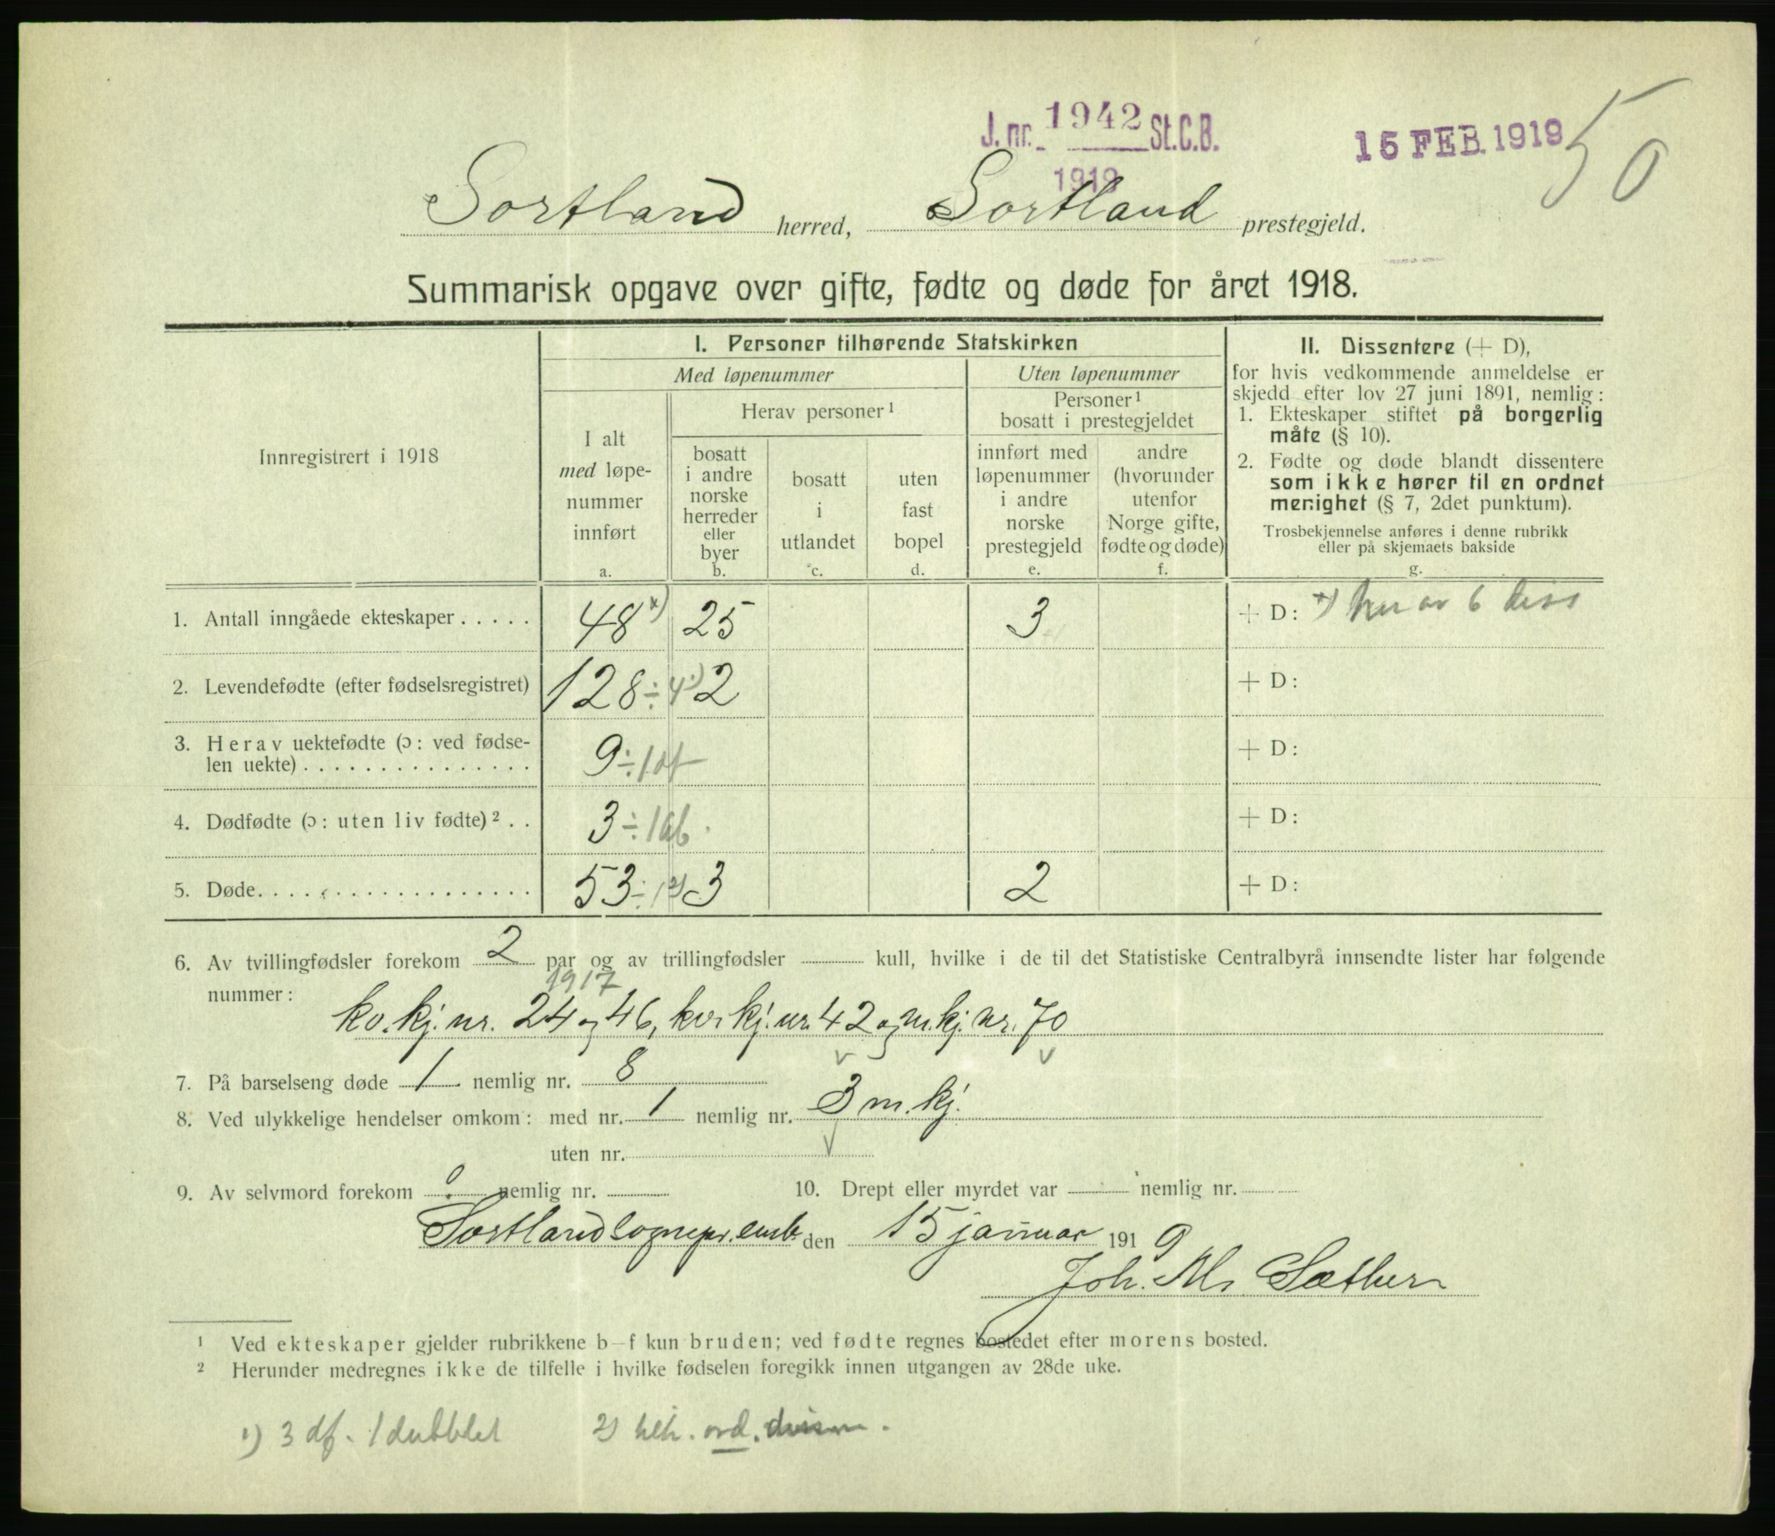 J. nr. 1942 St. C. B.
1919
15 FEB. 1919
50
Sortland herred, Sortland prestegjeld.
Summarisk opgave over gifte, fødte og døde for året 1918.
Innregistrert i 1918
I. Personer tilhørende Statskirken
Med løpenummer
Uten løpenummer
I alt med løpenummer innført
a.
Herav personer ¹
bosatt i andre norske herreder eller byer
b.
bosatt i utlandet
c.
uten fast bopel
d.
Personer ¹ bosatt i prestegjeldet
innført med løpenummer i andre norske prestegjeld
e.
andre (hvorunder utenfor Norge gifte, fødte og døde)
f.
II. Dissentere (+ D),
for hvis vedkommende anmeldelse er
skjedd efter lov 27 juni 1891, nemlig:
1. Ekteskaper stiftet på borgerlig
måte (§ 10).
2. Fødte og døde blandt dissentere
som ikke hører til en ordnet
menighet (§ 7, 2det punktum).
Trosbekjennelse anføres i denne rubrikk
eller på skjemaets bakside
g.
1. Antall inngåede ekteskaper . . . . . 48 x) 25 3 + D: x) herav 6 diss
2. Levendefødte (efter fødselsregistret) 128 ÷ 4 ¹) 2 + D:
3. Herav uektefødte (ɔ: ved fødse-
len uekte) . . . . . . . . . . . . . . . 9 ÷ 1 df + D:
4. Dødfødte (ɔ: uten liv fødte) ² . . 3 ÷ 1 ab. + D:
5. Døde. . . . . . . . . . . . . . . . . . 53 ÷ 1 ²) 3 2 + D:
6. Av tvillingfødsler forekom 2 par og av trillingfødsler kull, hvilke i de til det Statistiske Centralbyrå innsendte lister har følgende
nummer:
1917
kv. kj. nr. 24 og 46, kv. kj. nr. 42 og m. kj. nr. 70
7. På barselseng døde 1 nemlig nr. 8
8. Ved ulykkelige hendelser omkom: med nr. 1 nemlig nr. 3 m. kj.
uten nr.
9. Av selvmord forekom 0 nemlig nr. 10. Drept eller myrdet var nemlig nr.
Sortland sognepr. emb. den 15 januar 1919
Joh. M. Sæther
¹ Ved ekteskaper gjelder rubrikkene b–f kun bruden; ved fødte regnes bostedet efter morens bosted.
² Herunder medregnes ikke de tilfelle i hvilke fødselen foregikk innen utgangen av 28de uke.
¹) 3 df. 1 dubblet 2)